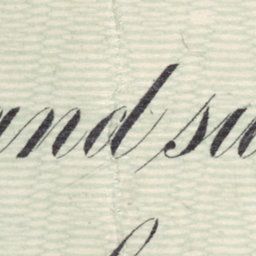 and su